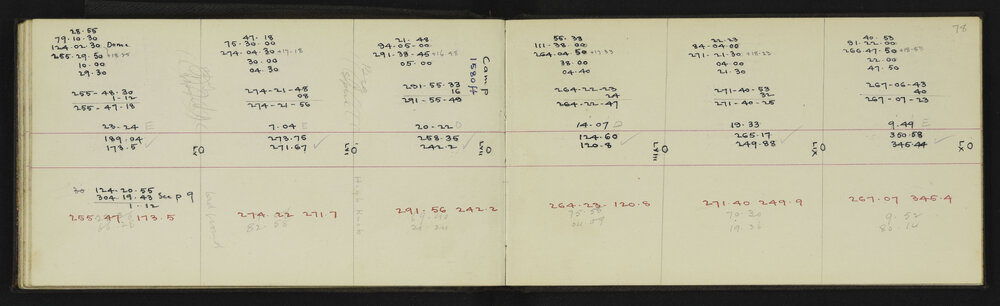 78
28.55
79.10.30
124.02.30 Dome
255.29.50 +18.25
10.00
29.30
255-48.30
1-12
255-47.18
23.24 E
189.04
173.5
LV
30 124.20.55
304.19.43 See p 9
1.12
255.47 173.5
47.18
75.30.00
274.04.30 +17-18
30.00
04.30
274-21-48
08
274-21-56
7.04 E
273.75
271.67
LVI
274.22 271.7
82.50
21.48
94-05-00
291-38-45 +16-48
05.00
Camp
1580ft
291-55-33
16
291-55-49
20-22
258.35
242.2
LVII
High Knob
291.56 242.2
55.38
111-38.00
264.04.50 +17-33
38.00
04.40
264-22-23
24
264-22-47
14.07 D
124.60
120.8
LVIII
264-23-120.8
22-23
84-04-00
271-21-30 +18-23
04.00
21.30
271-40-53
32
271-40-25
19.33
265.17
249.88
LIX
271.40 249.9
70.30
40-53
91-22-00
266-47-50 +18-53
22.00
47.50
267-06-43
40
267-07-23
9.49 E
350.58
345.44
LX
267.07 345.4
9.52
80.14